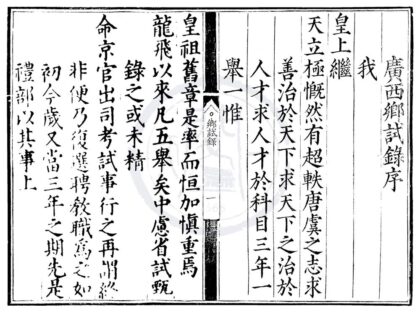 廣西鄉試錄序
我
皇上繼
天立極慨然有超軼唐虞之志求
善治於天下求天下之治於
人才求人才於科目三年一
舉一惟
鄉試錄
皇祖舊章是率而恒加慎重焉
龍飛以來凡五舉矣中慮省試甄
錄之或未精
命京官出司考試事行之再謂終
非便乃復選聘教職為之如
初今歲又當三年之期先是
禮部以其事上